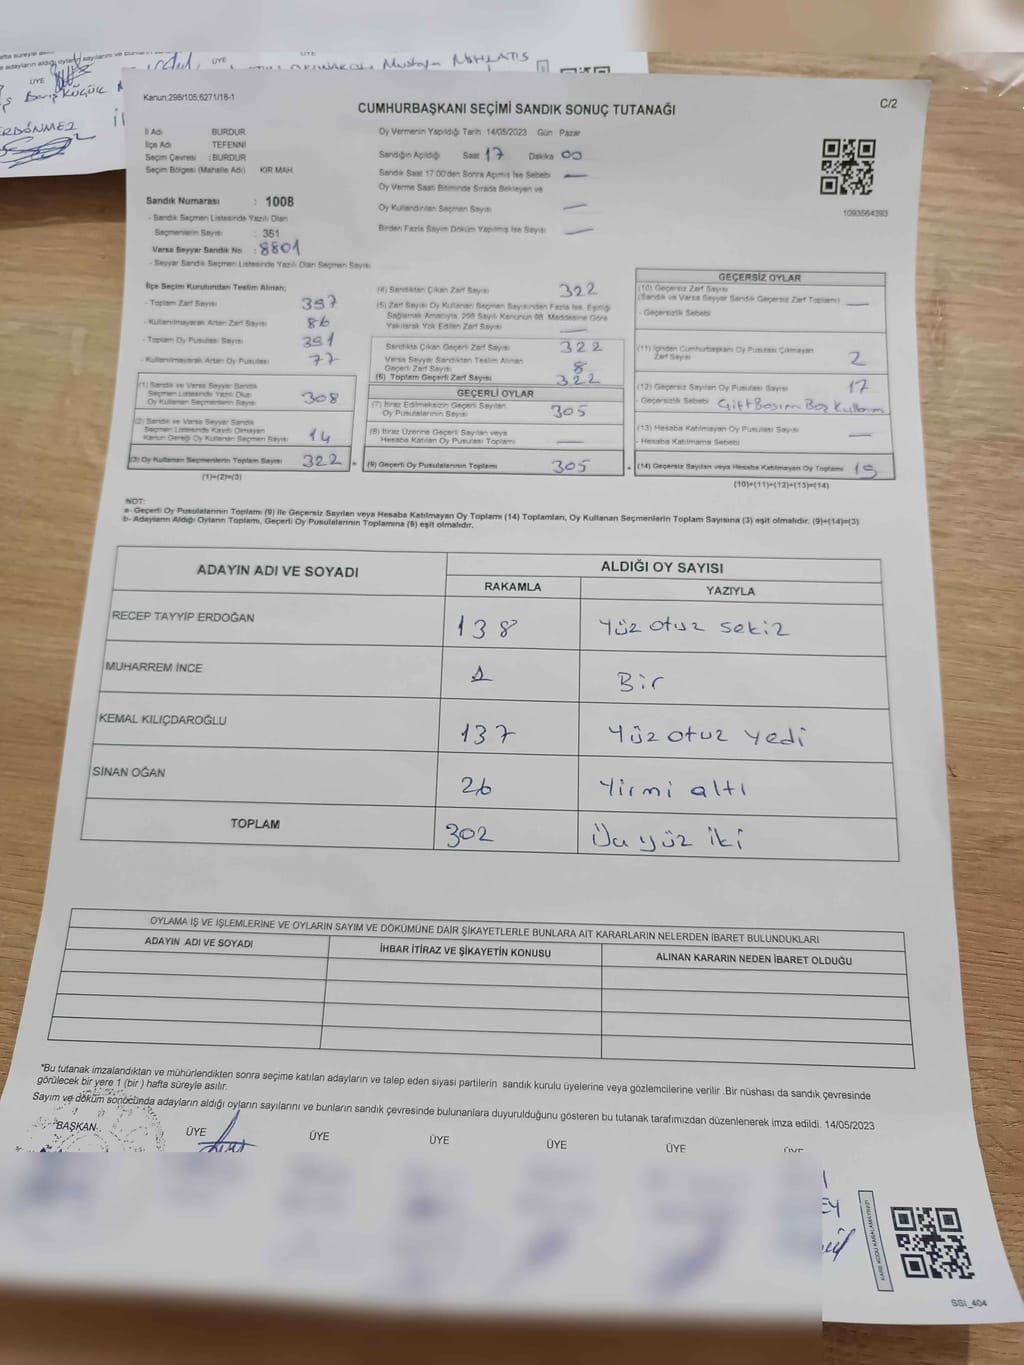 Mustafa
ÜYE
ÜYE
Barış KÜÇÜK
ERDÖNMEZ
Kanun;298/105;6271/18-1
C/2
CUMHURBAŞKANI SEÇİMİ SANDIK SONUÇ TUTANAĞI
İl Adı BURDUR
İlçe Adı TEFENNİ
Seçim Çevresi : BURDUR
Seçim Bölgesi (Mahalle Adı) KIR MAH.
Sandık Numarası : 1008
- Sandık Seçmen Listesinde Yazılı Olan
Seçmenlerin Sayısı : 361
Varsa Seyyar Sandık No : 8801
- Seyyar Sandık Seçmen Listesinde Yazılı Olan Seçmen Sayısı
Oy Vermenin Yapıldığı Tarih 14/05/2023 Gün Pazar
Sandığın Açıldığı Saat 17 Dakika 00
Sandık Saat 17.00'den Sonra Açılmış İse Sebebi —
Oy Verme Saati Bitiminde Sırada Bekleyen ve
Oy Kullandırılan Seçmen Sayısı —
Birden Fazla Sayım Döküm Yapılmış İse Sayısı —
1093564393
İlçe Seçim Kurulundan Teslim Alınan;
- Toplam Zarf Sayısı 397
- Kullanılmayarak Artan Zarf Sayısı 86
- Toplam Oy Pusulası Sayısı 391
- Kullanılmayarak Artan Oy Pusulası 77
(1) Sandık ve Varsa Seyyar Sandık
Seçmen Listesinde Yazılı Olup
Oy Kullanan Seçmenlerin Sayısı 308
(2) Sandık ve Varsa Seyyar Sandık
Seçmen Listesinde Kayıtlı Olmayan
Kanun Gereği Oy Kullanan Seçmen Sayısı 14
(3) Oy Kullanan Seçmenlerin Toplam Sayısı 322
(1)+(2)=(3)
(4) Sandıktan Çıkan Zarf Sayısı 322
(5) Zarf Sayısı Oy Kullanan Seçmen Sayısından Fazla İse, Eşitliği
Sağlamak Amacıyla, 298 Sayılı Kanunun 98. Maddesine Göre
Yakılarak Yok Edilen Zarf Sayısı —
Sandıkta Çıkan Geçerli Zarf Sayısı 322
Varsa Seyyar Sandıktan Teslim Alınan
Geçerli Zarf Sayısı 8
(6) Toplam Geçerli Zarf Sayısı 322
GEÇERLİ OYLAR
(7) İtiraz Edilmeksizin Geçerli Sayılan
Oy Pusulalarının Sayısı 305
(8) İtiraz Üzerine Geçerli Sayılan veya
Hesaba Katılan Oy Pusulası Toplamı —
(9) Geçerli Oy Pusulalarının Toplamı 305
GEÇERSİZ OYLAR
(10) Geçersiz Zarf Sayısı
(Sandık ve Varsa Seyyar Sandık Geçersiz Zarf Toplamı) —
- Geçersizlik Sebebi
(11) İçinden Cumhurbaşkanı Oy Pusulası Çıkmayan
Zarf Sayısı 2
(12) Geçersiz Sayılan Oy Pusulası Sayısı 17
- Geçersizlik Sebebi Çift Basım Boş Kullanım
(13) Hesaba Katılmayan Oy Pusulası Sayısı —
- Hesaba Katılmama Sebebi
(14) Geçersiz Sayılan veya Hesaba Katılmayan Oy Toplamı 19
(10)+(11)+(12)+(13)=(14)
NOT:
a- Geçerli Oy Pusulalarının Toplamı (9) ile Geçersiz Sayılan veya Hesaba Katılmayan Oy Toplamı (14) Toplamları, Oy Kullanan Seçmenlerin Toplam Sayısına (3) eşit olmalıdır. (9)+(14)=(3)
b- Adayların Aldığı Oyların Toplamı, Geçerli Oy Pusulalarının Toplamına (9) eşit olmalıdır.
ADAYIN ADI VE SOYADI ALDIĞI OY SAYISI
RAKAMLA YAZIYLA
RECEP TAYYİP ERDOĞAN 138 Yüz otuz sekiz
MUHARREM İNCE 1 Bir
KEMAL KILIÇDAROĞLU 137 Yüz otuz yedi
SİNAN OĞAN 26 Yirmi altı
TOPLAM 302 Üç yüz iki
OYLAMA İŞ VE İŞLEMLERİNE VE OYLARIN SAYIM VE DÖKÜMÜNE DAİR ŞİKAYETLERLE BUNLARA AİT KARARLARIN NELERDEN İBARET BULUNDUKLARI
ADAYIN ADI VE SOYADI İHBAR İTİRAZ VE ŞİKAYETİN KONUSU ALINAN KARARIN NEDEN İBARET OLDUĞU
*Bu tutanak imzalandıktan ve mühürlendikten sonra seçime katılan adayların ve talep eden siyasi partilerin sandık kurulu üyelerine veya gözlemcilerine verilir .Bir nüshası da sandık çevresinde
görülecek bir yere 1 (bir ) hafta süreyle asılır.
Sayım ve döküm sonucunda adayların aldığı oyların sayılarını ve bunların sandık çevresinde bulunanlara duyurulduğunu gösteren bu tutanak tarafımızdan düzenlenerek imza edildi. 14/05/2023
BAŞKAN ÜYE ÜYE ÜYE ÜYE ÜYE ÜYE
KARE KODU KARALAMAYINIZ!
SSİ_404